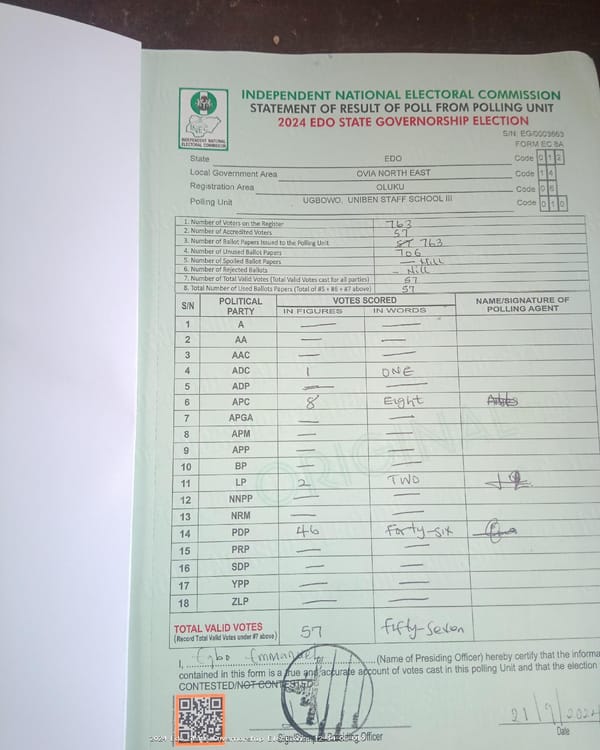 INDEPENDENT NATIONAL ELECTORAL COMMISSION
STATEMENT OF RESULT OF POLL FROM POLLING UNIT
2024 EDO STATE GOVERNORSHIP ELECTION
INEC
INDEPENDENT NATIONAL ELECTORAL COMMISSION
S/N: EG/0003663
FORM EC 8A
State EDO Code 0 1 2
Local Government Area OVIA NORTH EAST Code 1 4
Registration Area OLUKU Code 0 6
Polling Unit UGBOWO, UNIBEN STAFF SCHOOL III Code 0 1 0
1. Number of Voters on the Register 763
2. Number of Accredited Voters 57
3. Number of Ballot Papers Issued to the Polling Unit 57 763
4. Number of Unused Ballot Papers 706
5. Number of Spoiled Ballot Papers — Nill
6. Number of Rejected Ballots - Nill
7. Number of Total Valid Votes (Total Valid Votes cast for all parties) 57
8. Total Number of Used Ballots Papers (Total of #5 + #6 + #7 above) 57
S/N POLITICAL PARTY VOTES SCORED NAME/SIGNATURE OF POLLING AGENT
IN FIGURES IN WORDS
1 A — —
2 AA — —
3 AAC — —
4 ADC 1 ONE
5 ADP — —
6 APC 8 Eight
7 APGA — —
8 APM — —
9 APP — —
10 BP — —
11 LP 2 TWO
12 NNPP — —
13 NRM — —
14 PDP 46 Forty-six
15 PRP — —
16 SDP — —
17 YPP — —
18 ZLP — —
ORIGINAL
TOTAL VALID VOTES 57 fifty-seven
(Record Total Valid Votes under #7 above)
I, Egbo Emmanuel (Name of Presiding Officer) hereby certify that the informa
contained in this form is a true and accurate account of votes cast in this polling Unit and that the election
CONTESTED/NOT CONTESTED
21/9/2024
Signature of Presiding Officer Date